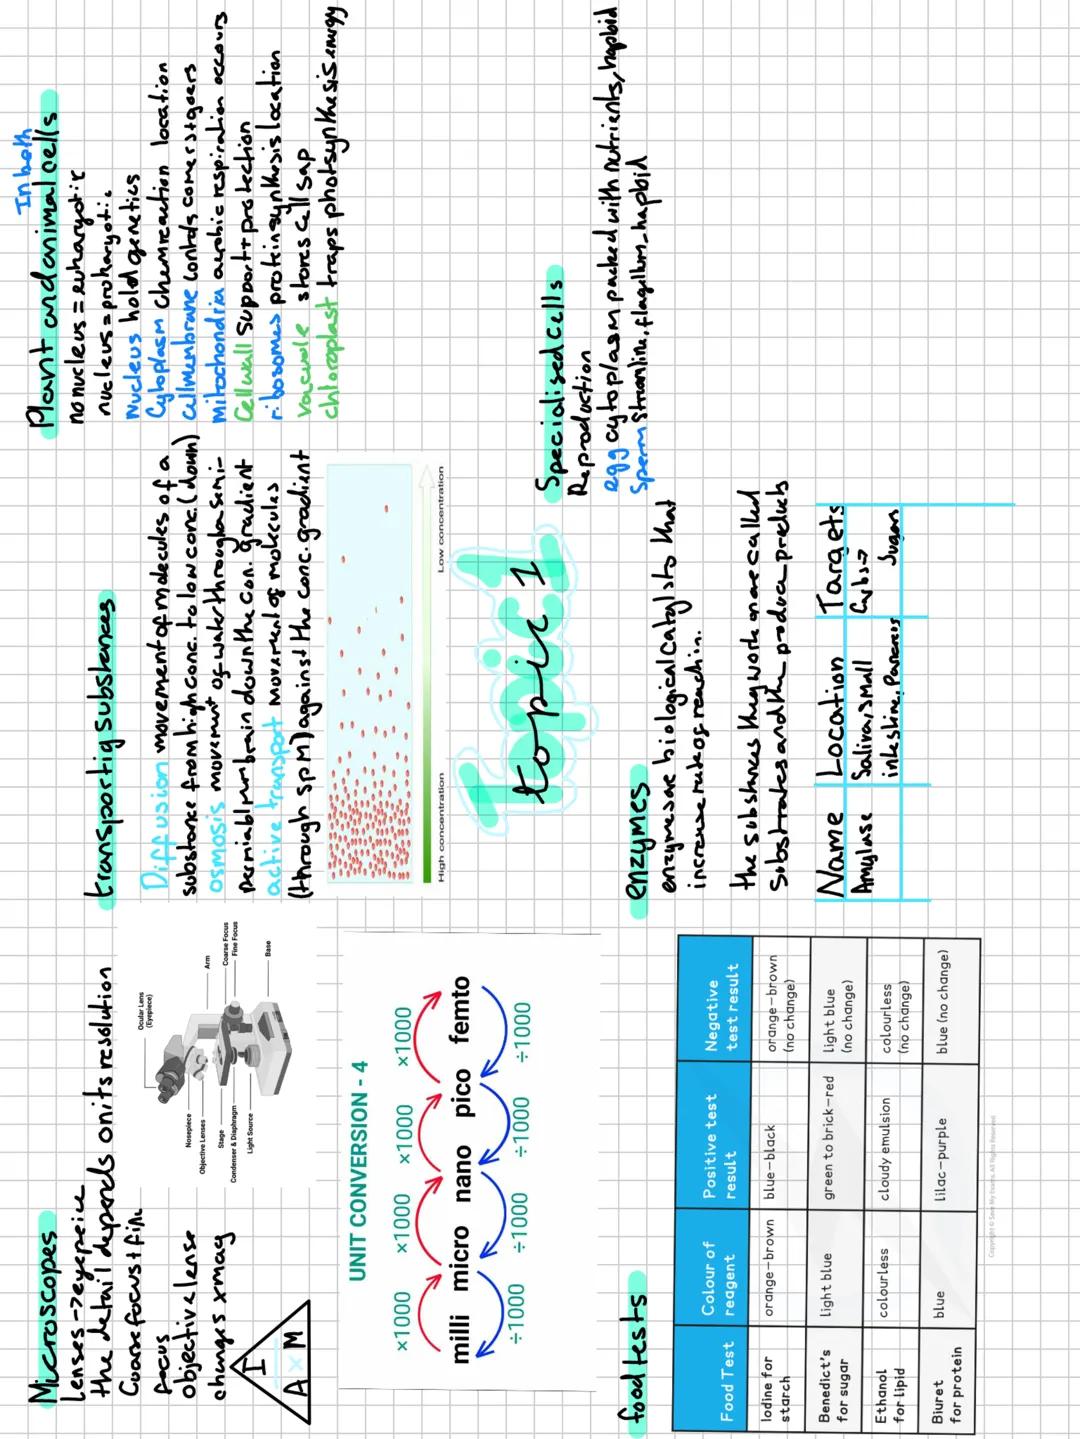 Microscopes
Lenses->eyepeice
the detail depends on its resolution
Coarse focus + fine
focus
objective lense
changes x mag
I
A x M
Ocular Lens
(Eyepiece)
Arm
Nosepiece
Objective Lenses
Stage
Condenser & Diaphragm
Light Source
Coarse Focus
Fine Focus
Base
UNIT CONVERSION - 4
×1000 ×1000 ×1000 ×1000
milli micro nano pico femto
÷1000 ÷1000 ÷1000 ÷1000
food tests
Food Test Colour of reagent Positive test result Negative test result
Iodine for starch orange-brown blue-black orange-brown (no change)
Benedict's for sugar light blue green to brick-red light blue (no change)
Ethanol for lipid colourless cloudy emulsion colourless (no change)
Biuret for protein blue lilac-purple blue (no change)
Copyright © Save My Exams. All Rights Reserved
transportig substances
Diffusion movement of molecules of a
substance from high conc. to low conc. (down)
osmosis movement of water through a semi-
permiabl membrain down the con. gradient
active transport movement of molecules
(through SPM) against the conc. gradient
High concentration Low concentration
Topic 1
topic 1
enzymes
enzymes are biological catalysts that
increase rate of reaction.
the substances they work on are called
Substrates and the produce products
Name Location Targets
Amylase Saliva, small intestine, Pancreas Carbs-> Sugars
Plant and animal cells
In both
no nucleus = eukaryotic
nucleus = prokaryotic
Nucleus hold genetics
Cytoplasm chem reaction location
cell membrane controls comers + goers
Mitochondria aerobic respiration occours
Cell wall support + protection
ribosomes protein synthesis location
vacuole stores cell sap
chloroplast traps photsynthesis energy
Specialised Cells
Reproduction
egg cytoplasm packed with nutrients, haploid
Sperm Streamline, flagellum, haploid